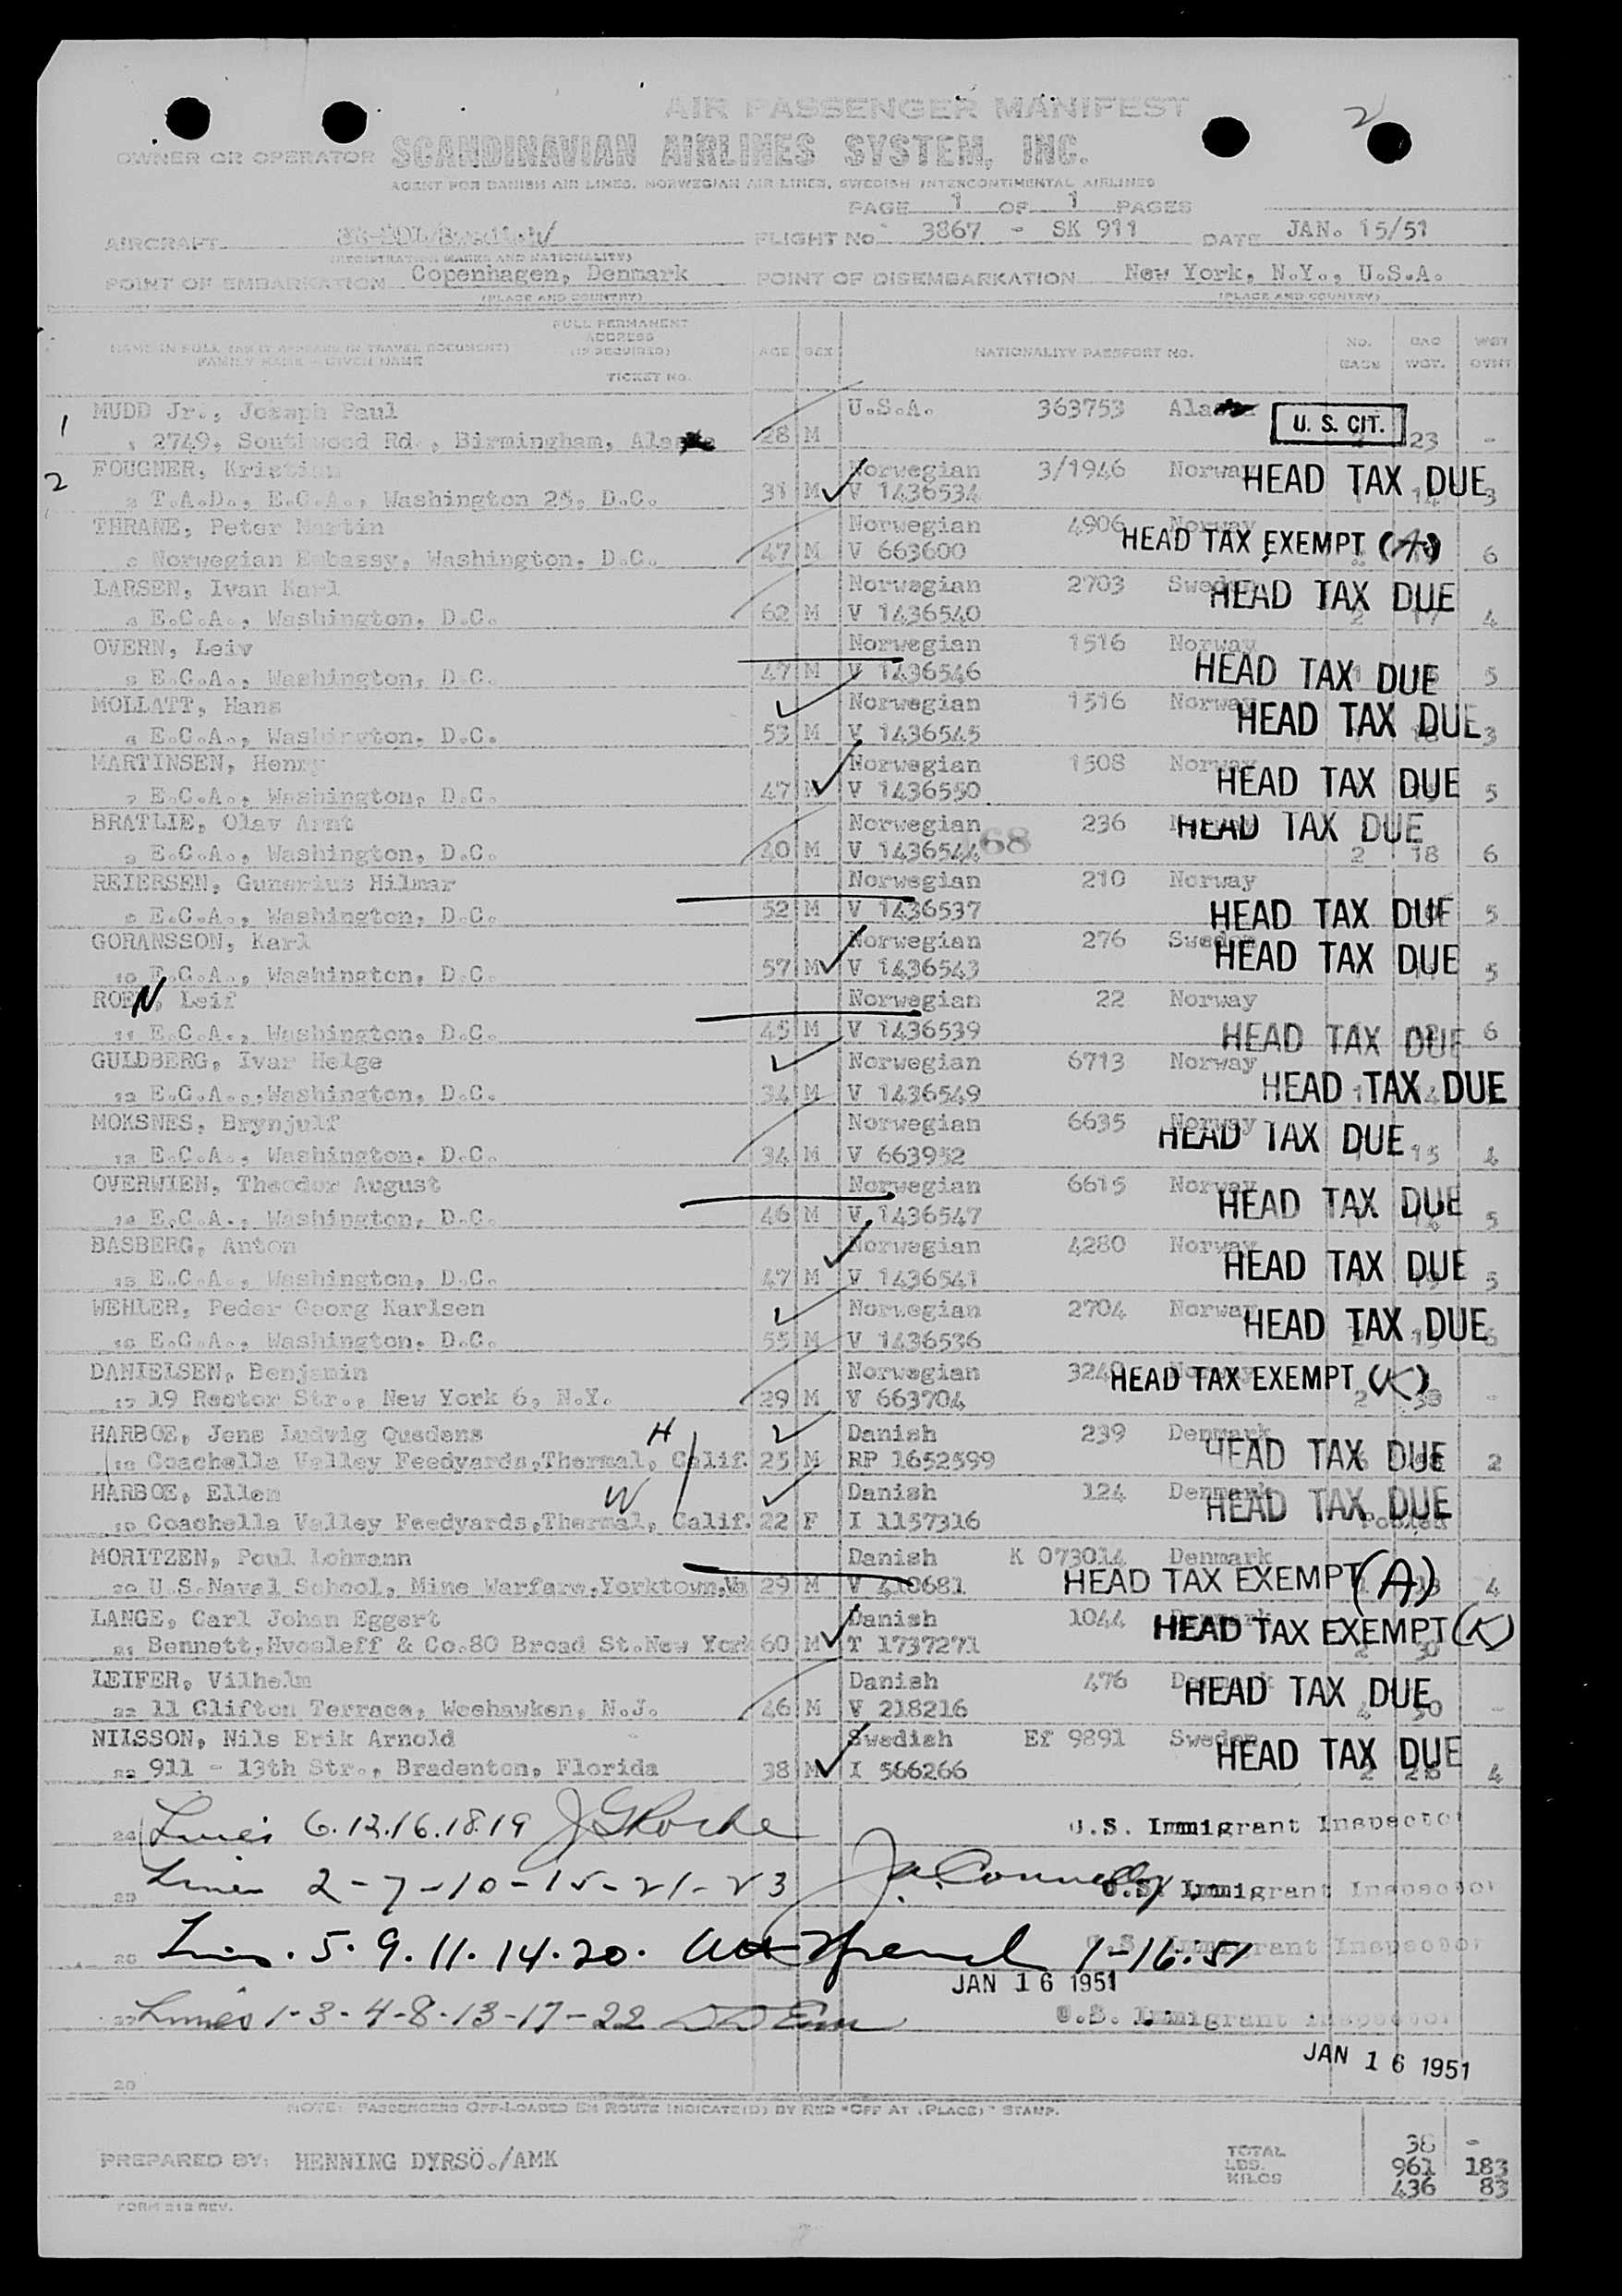 2
AIR PASSENGER MANIFEST
OWNER OR OPERATOR SCANDINAVIAN AIRLINES SYSTEM, INC.
AGENT FOR DANISH AIR LINES, NORWEGIAN AIR LINES, SWEDISH INTERCONTINENTAL AIRLINES
PAGE 1 OF 1 PAGES
AIRCRAFT FLIGHT No 3867 - SK 911 DATE JAN. 15/51
(REGISTRATION MARKS AND NATIONALITY)
POINT OF EMBARKATION Copenhagen, Denmark POINT OF DISEMBARKATION New York, N.Y., U.S.A.
(PLACE AND COUNTRY) (PLACE AND COUNTRY)
NAME IN FULL (AS IT APPEARS IN TRAVEL DOCUMENT) FAMILY NAME - GIVEN NAME FULL PERMANENT ADDRESS (IF REQUIRED) TICKET No. AGE SEX NATIONALITY PASSPORT No. NO. BAGS BAG WGT. WGT OVHT
1 MUDD Jr., Joseph Paul U.S.A. 363753 Ala U. S. CIT.
1 2749, Southwood Rd., Birmingham, Ala 28 M 23 -
2 FOUGNER, Kristian Norwegian 3/1946 Norway HEAD TAX DUE
2 T.A.D., E.C.A., Washington 25, D.C. 31 M V 1436534 14 3
THRANE, Peter Martin Norwegian 4906 Norway HEAD TAX EXEMPT (A)
3 Norwegian Embassy, Washington, D.C. 47 M V 663600 6
LARSEN, Ivan Karl Norwegian 2703 Sweden HEAD TAX DUE
4 E.C.A., Washington, D.C. 62 M V 1436540 2 17 4
OVERN, Leiv Norwegian 1516 Norway
5 E.C.A., Washington, D.C. 47 M V 1436546 HEAD TAX DUE 5
MOLLATT, Hans Norwegian 1516 Norway HEAD TAX DUE
6 E.C.A., Washington, D.C. 53 M V 1436545 3
MARTINSEN, Henry Norwegian 1508 Norway HEAD TAX DUE
7 E.C.A., Washington, D.C. 47 M V 1436550 5
BRATLIE, Olav Arnt Norwegian 236 HEAD TAX DUE
8 E.C.A., Washington, D.C. 40 M V 1436544 68 2 18 6
REIERSEN, Gunerius Hilmar Norwegian 210 Norway
9 E.C.A., Washington, D.C. 52 M V 1436537 HEAD TAX DUE 5
GORANSSON, Karl Norwegian 276 Sweden HEAD TAX DUE
10 E.C.A., Washington, D.C. 57 M V 1436543 5
ROEN, Leif Norwegian 22 Norway
11 E.C.A., Washington, D.C. 45 M V 1436539 HEAD TAX DUE 6
GULDBERG, Ivar Helge Norwegian 6713 Norway
12 E.C.A., Washington, D.C. 34 M V 1436549 HEAD TAX DUE
MOKSNES, Brynjulf Norwegian 6635 Norway HEAD TAX DUE
13 E.C.A., Washington, D.C. 34 M V 663952 15 4
OVERWIEN, Theodor August Norwegian 6615 Norway HEAD TAX DUE
14 E.C.A., Washington, D.C. 46 M V 1436547 5
BASBERG, Anton Norwegian 4280 Norway HEAD TAX DUE
15 E.C.A., Washington, D.C. 47 M V 1436541 5
WEHLER, Peder Georg Karlsen Norwegian 2704 Norway HEAD TAX DUE
16 E.C.A., Washington, D.C. 55 M V 1436536
DANIELSEN, Benjamin Norwegian HEAD TAX EXEMPT (K)
17 19 Rector Str., New York 6, N.Y. 29 M V 663704 2 -
HARBOE, Jens Ludvig Quedens H Danish 239 Denmark HEAD TAX DUE
18 Coachella Valley Feedyards, Thermal, Calif. 25 M RP 1652599 2
HARBOE, Ellen W Danish 124 Denmark HEAD TAX DUE
19 Coachella Valley Feedyards, Thermal, Calif. 22 F I 1157316 Pooled
MORITZEN, Poul Lohmann Danish K 073014 Denmark
20 U.S.Naval School, Mine Warfare, Yorktown, Va 29 M V 410681 HEAD TAX EXEMPT (A) 4
LANGE, Carl Johan Eggert Danish 1044 HEAD TAX EXEMPT (K)
21 Bennett, Hvosleff & Co. 80 Broad St. New York 60 M T 1737271 2 30
LEIFER, Vilhelm Danish 476 Denmark HEAD TAX DUE
22 11 Clifton Terrace, Weehawken, N.J. 46 M V 218216 4 50 -
NILSSON, Nils Erik Arnold Swedish Ef 9891 Sweden HEAD TAX DUE
23 911 - 13th Str., Bradenton, Florida 38 M I 566266 2 4
24 Lines 6.12.16.18.19 J G Roche U.S. Immigrant Inspector
25 Lines 2-7-10-15-21-23 J.A. Connelly U.S. Immigrant Inspector
26 Lines. 5. 9. 11. 14. 20. 1-16-51 U.S. Immigrant Inspector
JAN 16 1951
27 Lines 1-3-4-8-13-17-22 U.S. Immigrant Inspector
JAN 16 1951
28
NOTE: PASSENGERS OFF-LOADED EN ROUTE INDICATE(D) BY RED "OFF AT (PLACE)" STAMP.
PREPARED BY: HENNING DYRSÖ./AMK
TOTAL 38 -
LBS. 961 183
KILOS 436 83
FORM 212 REV.